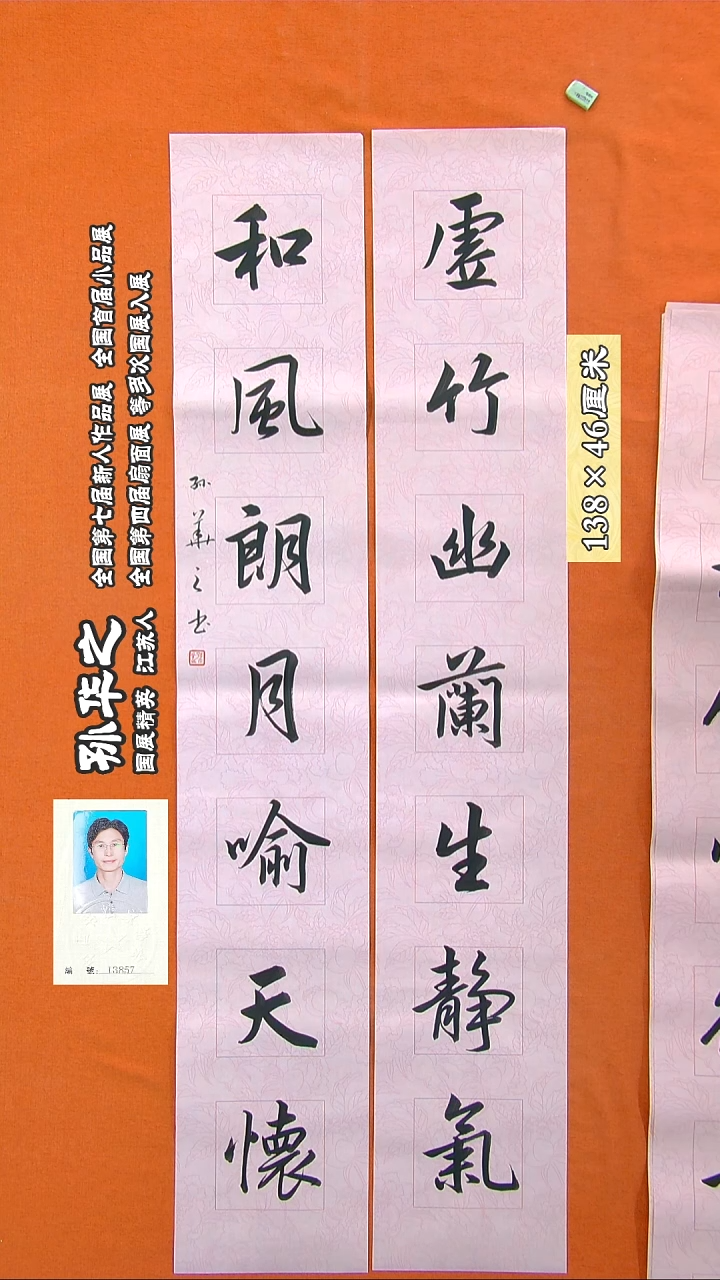 虛竹幽蘭生静氣
和風朗月喻天懷
孙華之书
138×46厘米
孙华之
国展精英 江苏人
全国第七届新人作品展 全国首届小品展
全国第四届扇面展 等多次国展入展
編 號: 13857